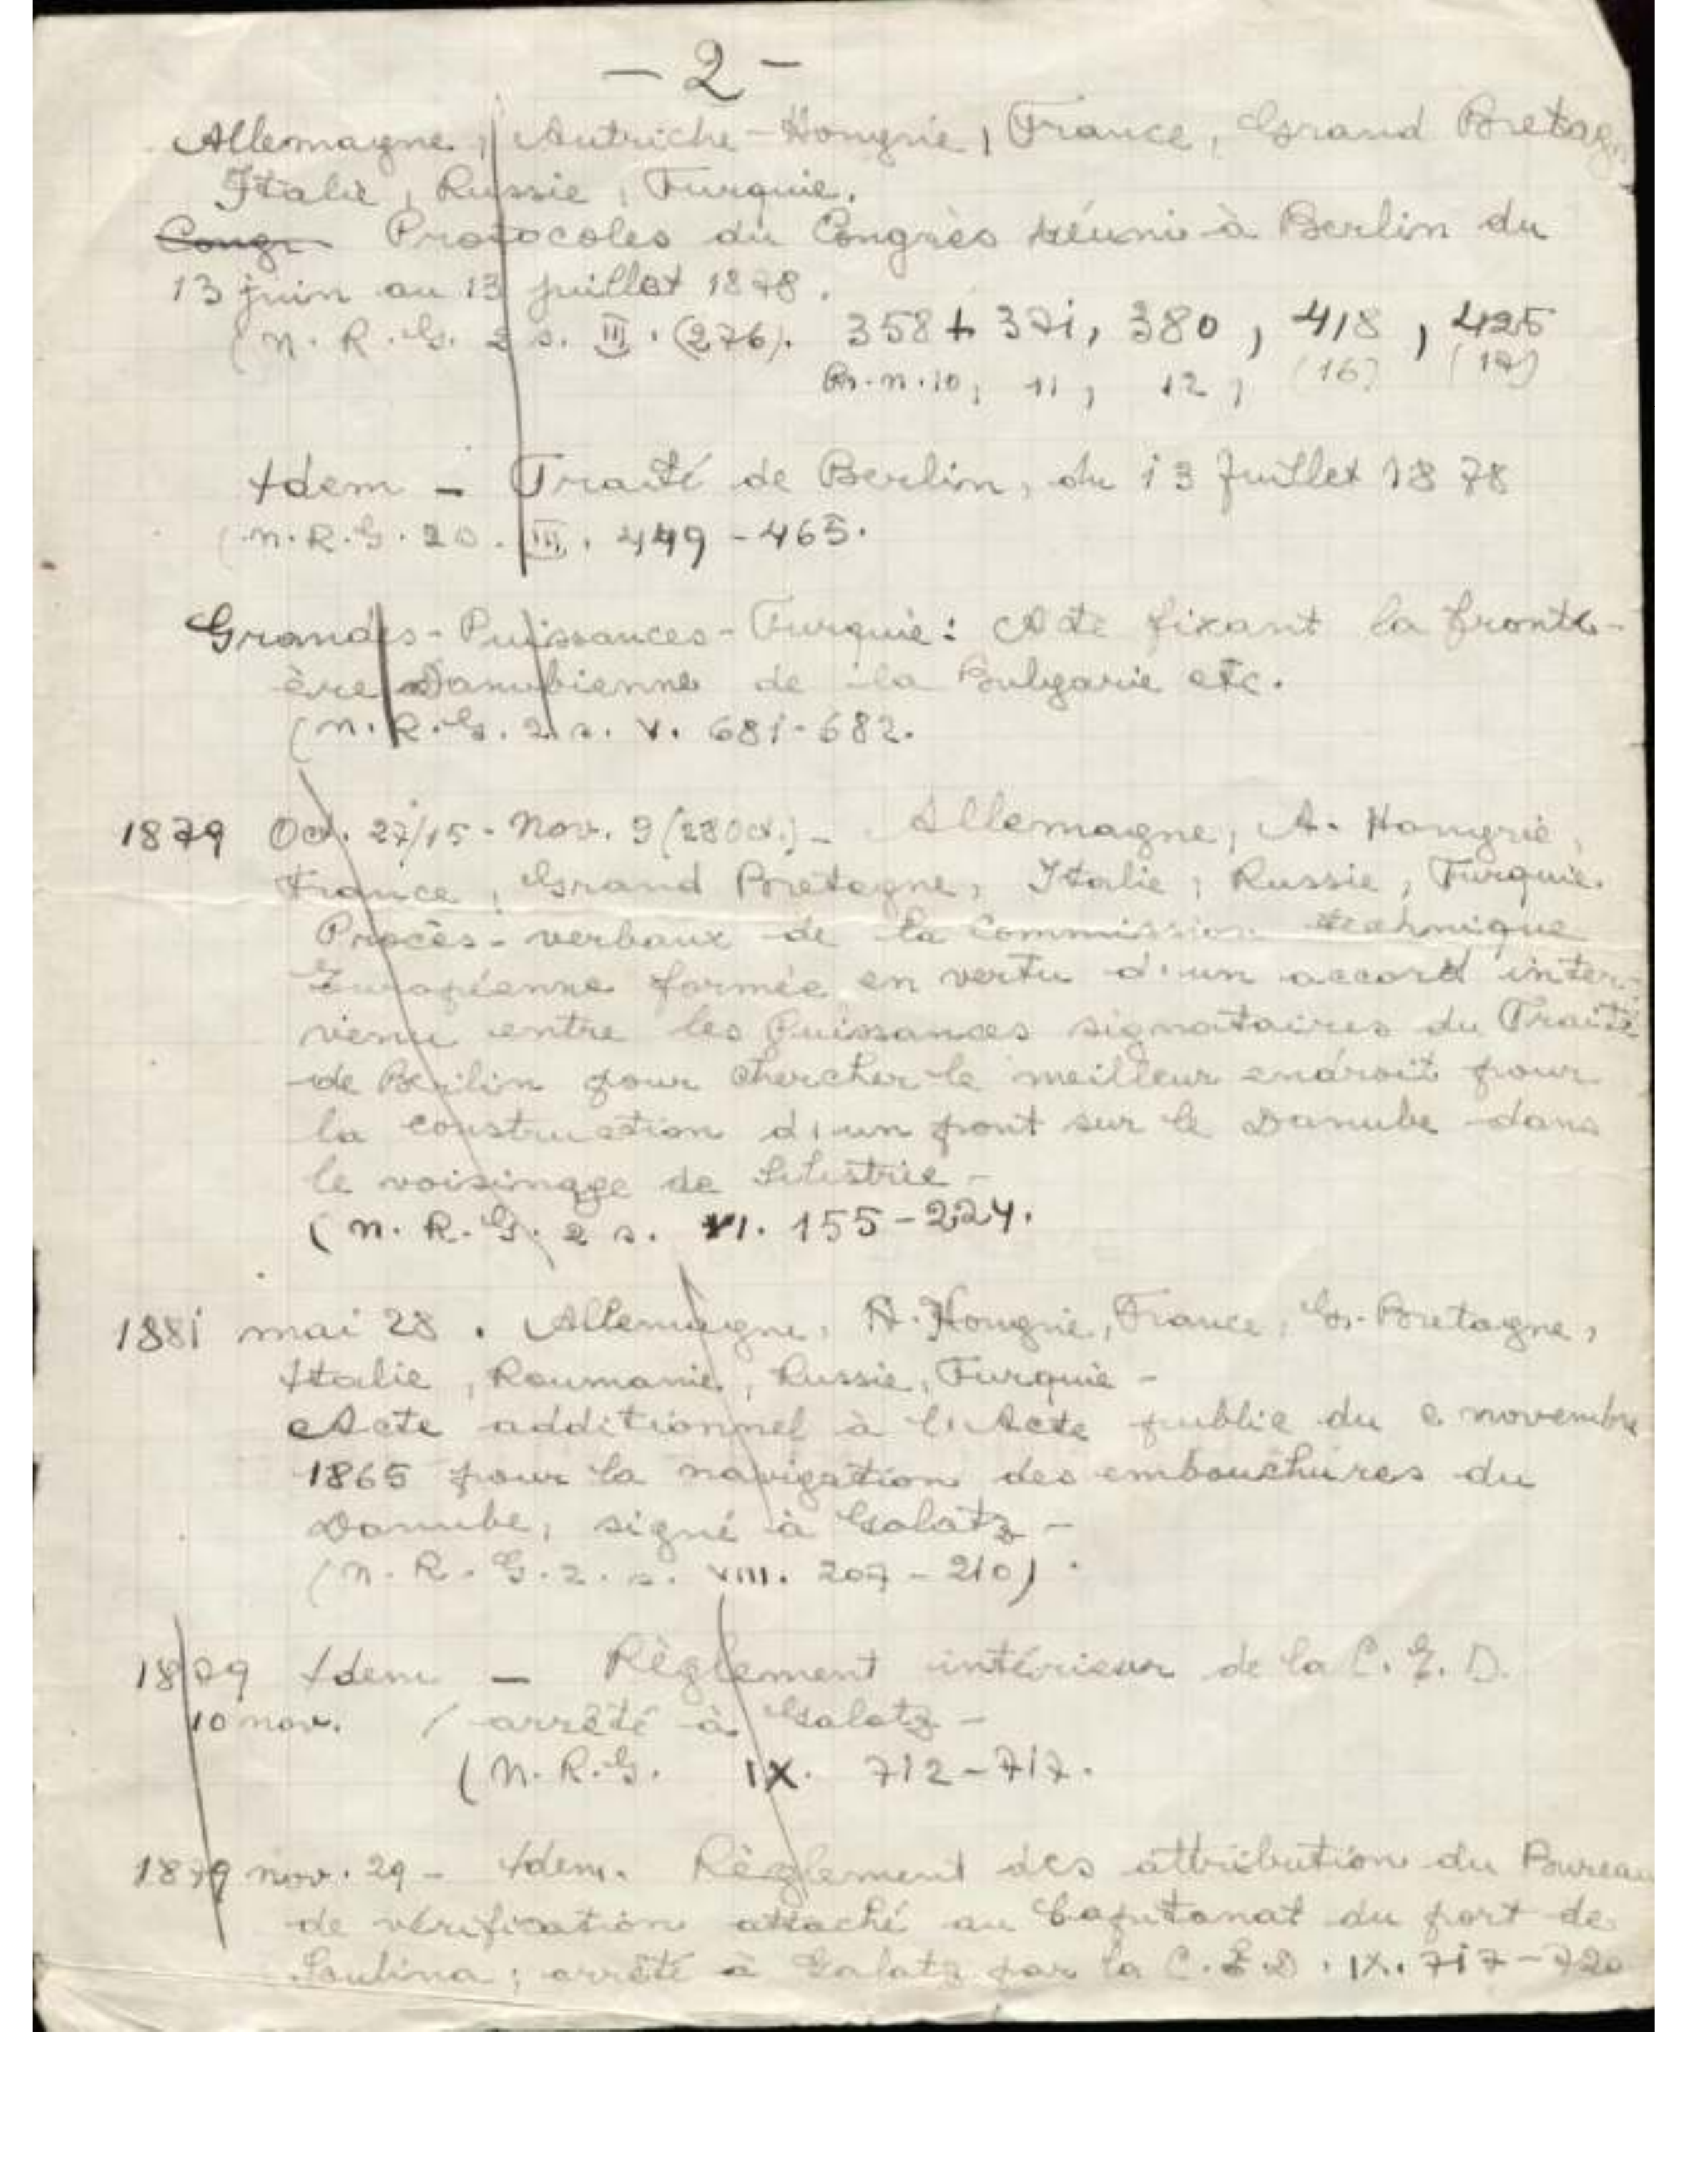 - 2 -
Allemagne, Autriche-Hongrie, France, Grand Bretag
Italie, Russie, Turquie.
Congr Protocoles du Congrès réuni à Berlin du
13 juin au 13 juillet 1878.
(N. R. G. 2 s. III. (276). 358 + 371, 380, 418, 425
Pr. n. 10, 11, 12, (16) (17)
Idem - Traité de Berlin, du 13 Juillet 1878
(N. R. G. 2 s. III. 449-465.
Grandes-Puissances-Turquie: Acte fixant la fronti-
ère Danubienne de la Bulgarie etc.
(N. R. G. 2 s. V. 681-682.
1879 Oct. 27/15 - Nov. 9 (28 Oct.) - Allemagne, A. Hongrie,
France, Grand Bretagne, Italie, Russie, Turquie.
Procès-verbaux de la Commission technique
Européenne formée en vertu d'un accord inter-
venu entre les Puissances signataires du Traité
de Berlin pour chercher le meilleur endroit pour
la construction d'un pont sur le Danube dans
le voisinage de Silistrie -
(N. R. G. 2 s. VI. 155-224.
1881 mai 28. Allemagne, A. Hongrie, France, Gr. Bretagne,
Italie, Roumanie, Russie, Turquie -
Acte additionnel à l'Acte public du 2 novembre
1865 pour la navigation des embouchures du
Danube, signé à Galatz -
(N. R. G. 2. s. VIII. 207-210).
1879 Idem - Règlement intérieur de la C. E. D.
10 nov. / arrêté à Galatz -
(N. R. G. IX. 712-717.
1879 nov. 29 - Idem. Règlement des attribution du Bureau
de vérification attaché au Capitanat du port de
Soulina; arrêté à Galatz par la C. E. D. IX. 717-720